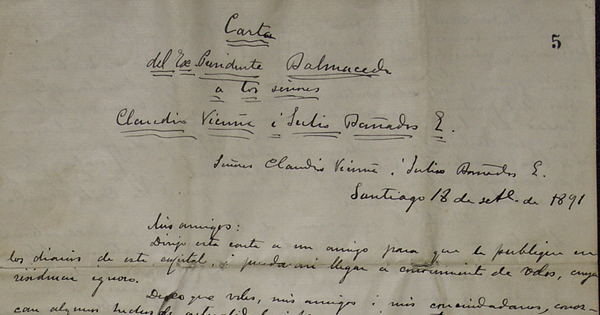 Carta
5
del Ex Presidente Balmaceda
a los señores
Claudio Vicuña i Julio Bañados E.
Señores Claudio Vicuña i Julio Bañados E.
Santiago 18 de set. de 1891
Mis amigos:
Dirijo esta carta a un amigo para que la publique en
los diarios de esta capital, i pueda asi llegar a conocimiento de Vdes, cuya
residencia ignoro.
Deseo que Vdes, mis amigos i mis conciudadanos, conoz-
can algunos hechos de actualidad